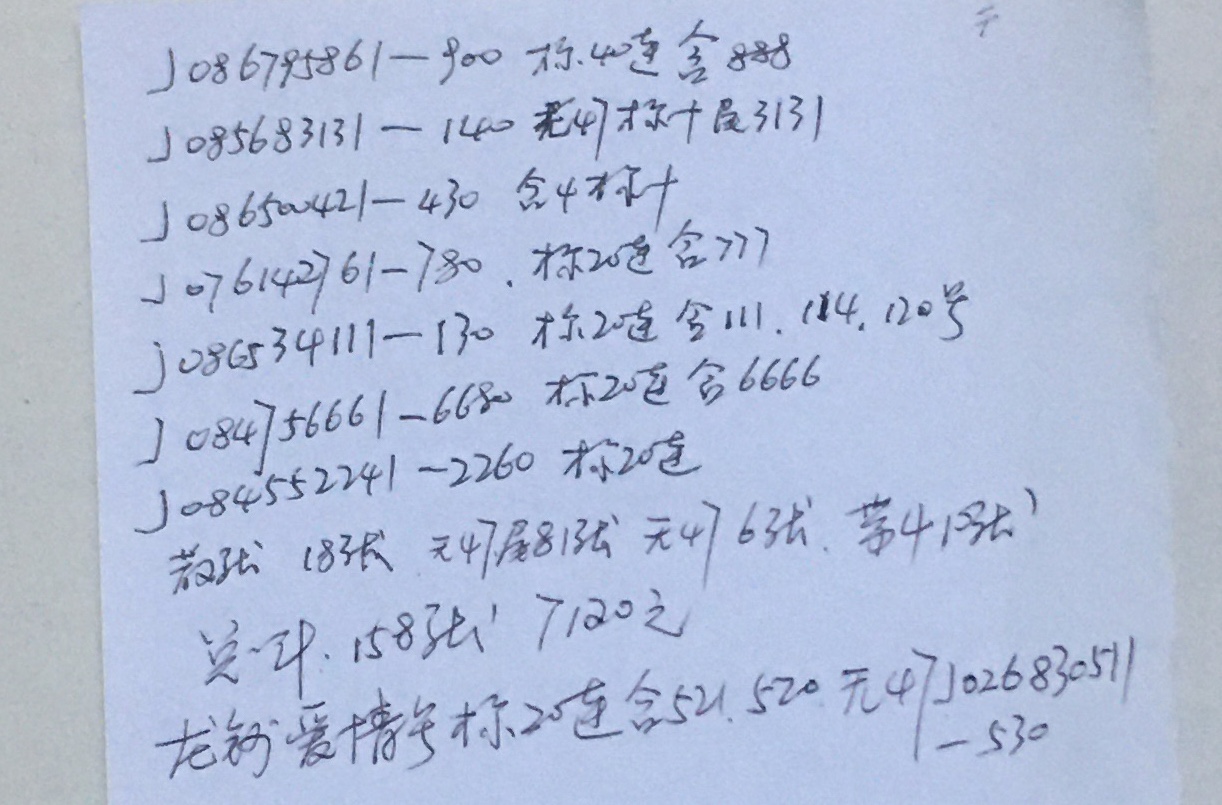 J086795861—900 标.40连含888
J085683131—140 无47标十尾3131
J086500421—430 含4标十
J076142761—780. 标20连含777
J086534111—130 标20连含111.114.120号
J084756661—6680 标20连含6666
J084552241—2260 标20连
散张 18张 无47尾8 1张 无47 6张. 带4 1张
总计.158张 7120元
龙钞爱情号标20连含521.520.无47J026830511
—530